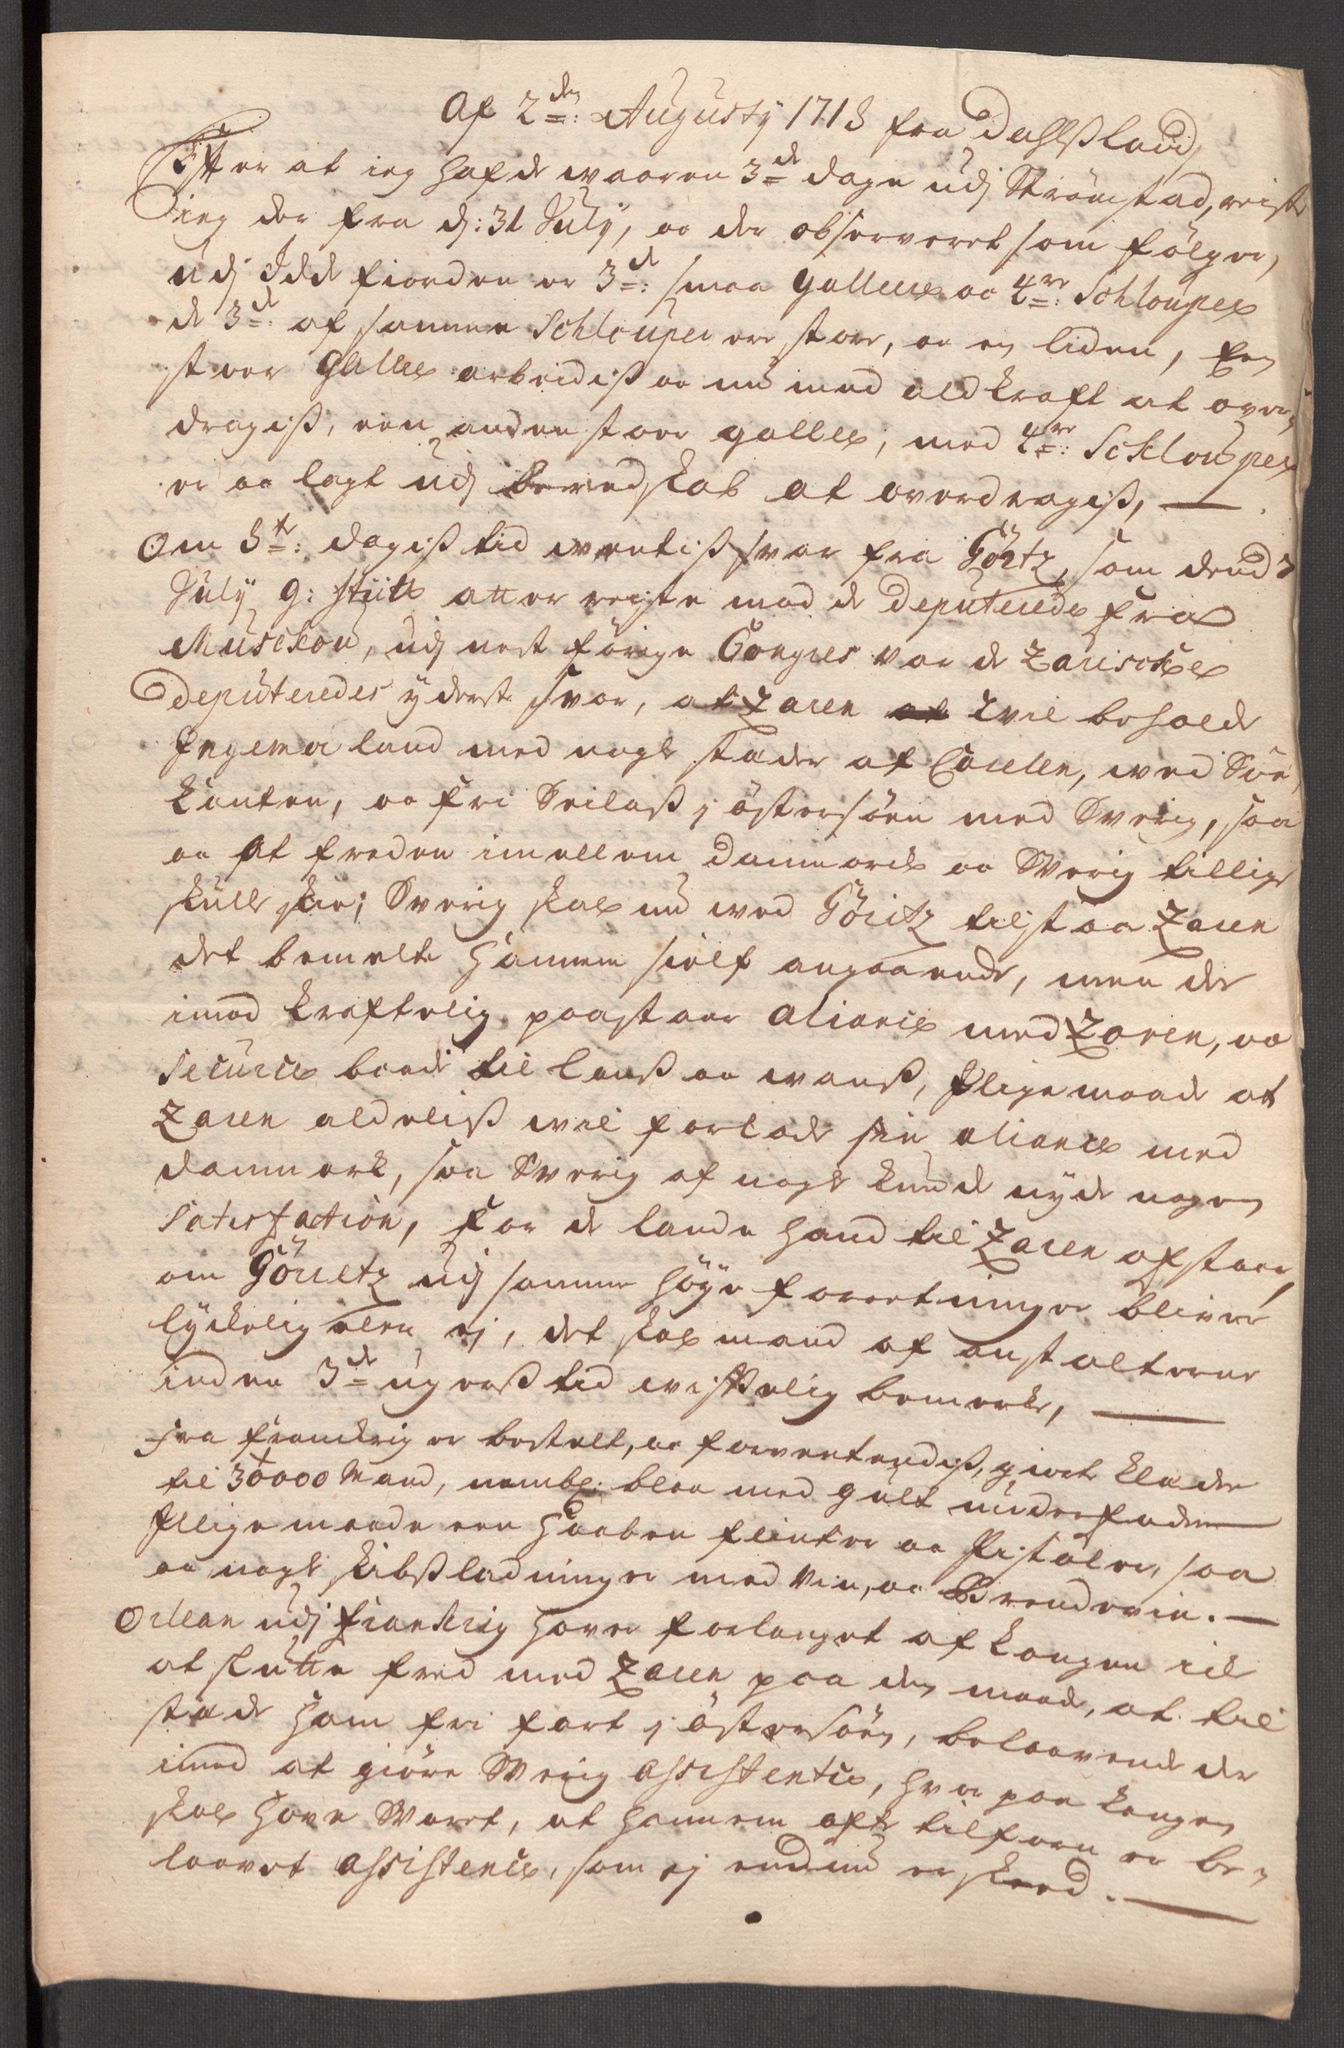 Af 2den: Augusty 1718 fra Dahlßland
Efter at ieg hafde waaren 3de dage udj Strömstad, reiste
ieg der fra dj: 31 July, oc der observeret som fölger,
udj Idde fiorden er 3de: smaa Galleier oc 4re: Schlouper
de 3de: af samme Schlouper ere store, oc en liden, Een
stoer Gallei arbeidiß oc nu med ald kraft at over,
dragiß, een anden stoer gallei, med 4re: Schlouper
er oc lagt udj beredskab at overdragiß,
Om 8te: dagiß tid wentiß svar fra Görtz, som dend 9
July g: Stiil atter reiste med de Deputerede fra
Musckou, udj nest förige Congres var de Zarische
Deputeredes yderste svar, at Zaren wil beholde
Ingermaland med nogle stæder af Carelen, wed Söe
kanten, oc fri Seilaß j östersöen med Sverig, saa
oc at freden imellem Danmarck oc Sverig tillige
skulle skee; Sverig skal nu wed Göritz tilstaa Zaren
det bemelte hannem sielf angaaende, men der
imod kraftelig paastaar aliance med Zaren, oc
secures baade til lands oc wands, jligemaade at
Zaren aldeliß wil forlade sin aliance med
Danmark, saa Sverig af nogle kunde nyde nogen
Satisfaction, for de lande hand til Zaren afstaar,
om Görretz udj samme höye forretninger bliver
lyckelig eller ej, det skal mand af anstalterne
inden 3de ugerß tid wisselig bemerke,
Fra franckrig er bestelt, oc forventendiß, giorte klæder
til 30000 Mand, nembl: blaa med guult underfoder
jlligemaade een hoben flinter oc Pistoler, saa
oc nogle skibßladninger med Vin, oc Brendevin.
Orlean udj franckrig haver forlanget af kongen
at slutte fred med Zaren paa den maade, at til
stæde ham fri fart j östersöen, belovende der
imod at giöre Sverig assistentce, hvor paa kongen
skal have Svaret, at hannem ofte tilforn er be-
loovet assistence, som ej endnu er skeed.